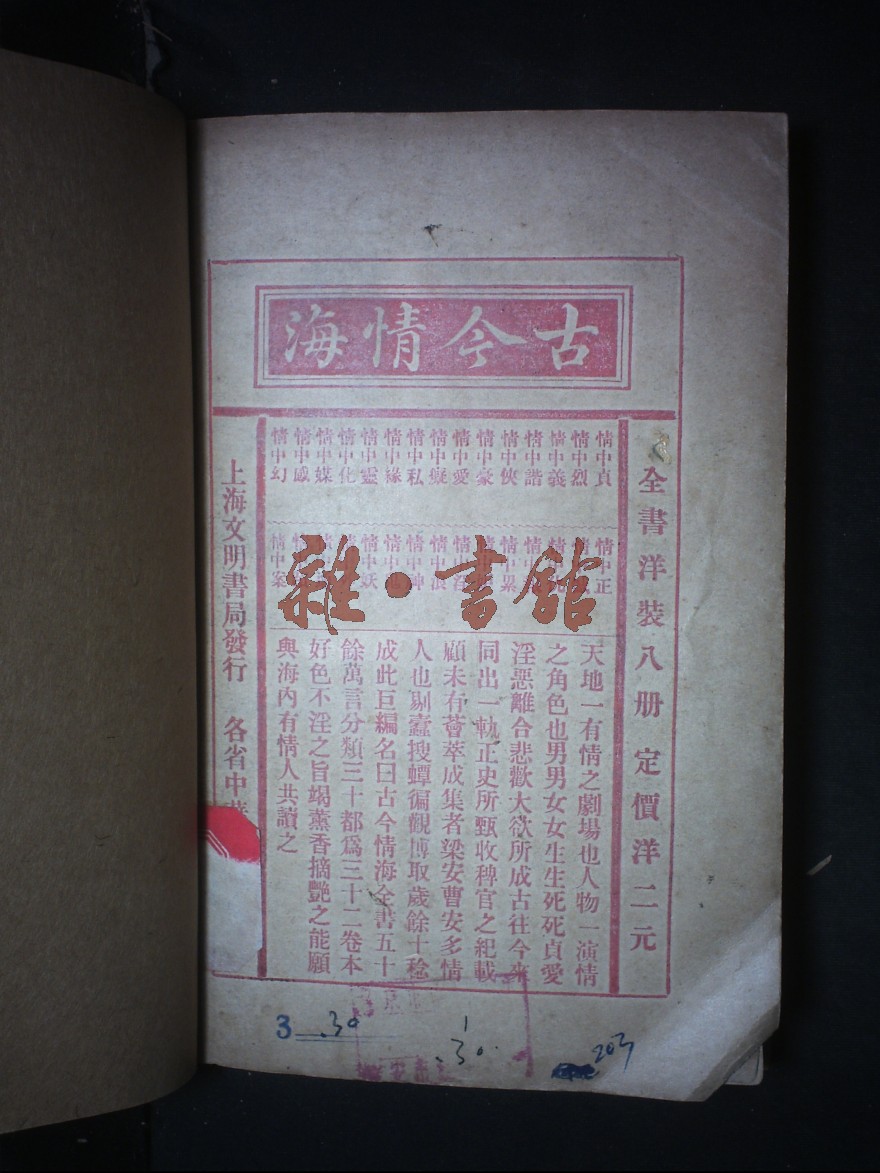 古今情海
全書洋裝八册 定價洋二元
情中貞
情中烈
情中義
情中諧
情中俠
情中豪
情中愛
情中癡
情中私
情中緣
情中靈
情中化
情中媒
情中感
情中幻
情中正
情中累
情中妖
情中案
雜·書館
天地一有情之劇場也人物一演情
之角色也男男女女生生死死貞愛
淫惡離合悲歡大欲所成古往今來
同出一軌正史所甄收稗官之紀載
顧未有薈萃成集者梁安曹安多情
人也剔蠹搜蟫徧觀博取歲餘十稔
成此巨編名曰古今情海全書五十
餘萬言分類三十都爲三十二卷本
好色不淫之旨竭薰香摘艷之能願
與海內有情人共讀之
上海文明書局發行 各省中
3 .30
1
.30
203